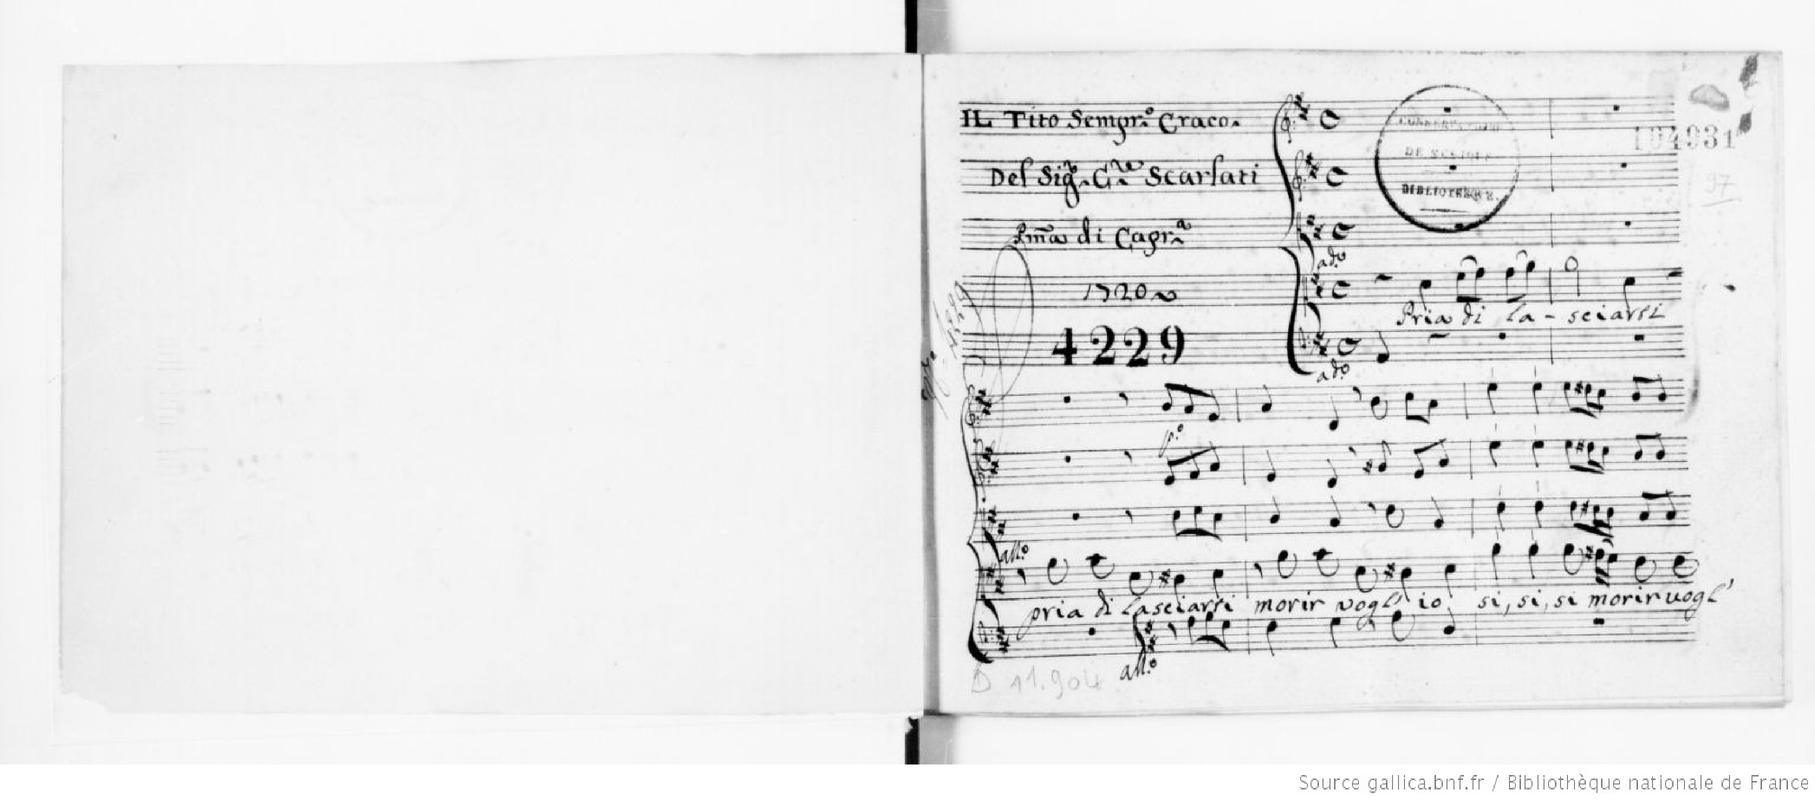 IL Tito Sempr.o Craco.
Del Sig.r C.re Scarlati
Pma di Capr.a
1720
4229
CONSERVATOIRE
DE MUSIQUE
BIBLIOTHEQUE.
104931
97
ad.o
Pria di la - sciarsi
ad.o
p.o
all.o
pria di lasciarsi morir vogl' io si, si, si morir vogl'
all.o
D 11.904
Source gallica.bnf.fr / Bibliothèque nationale de France